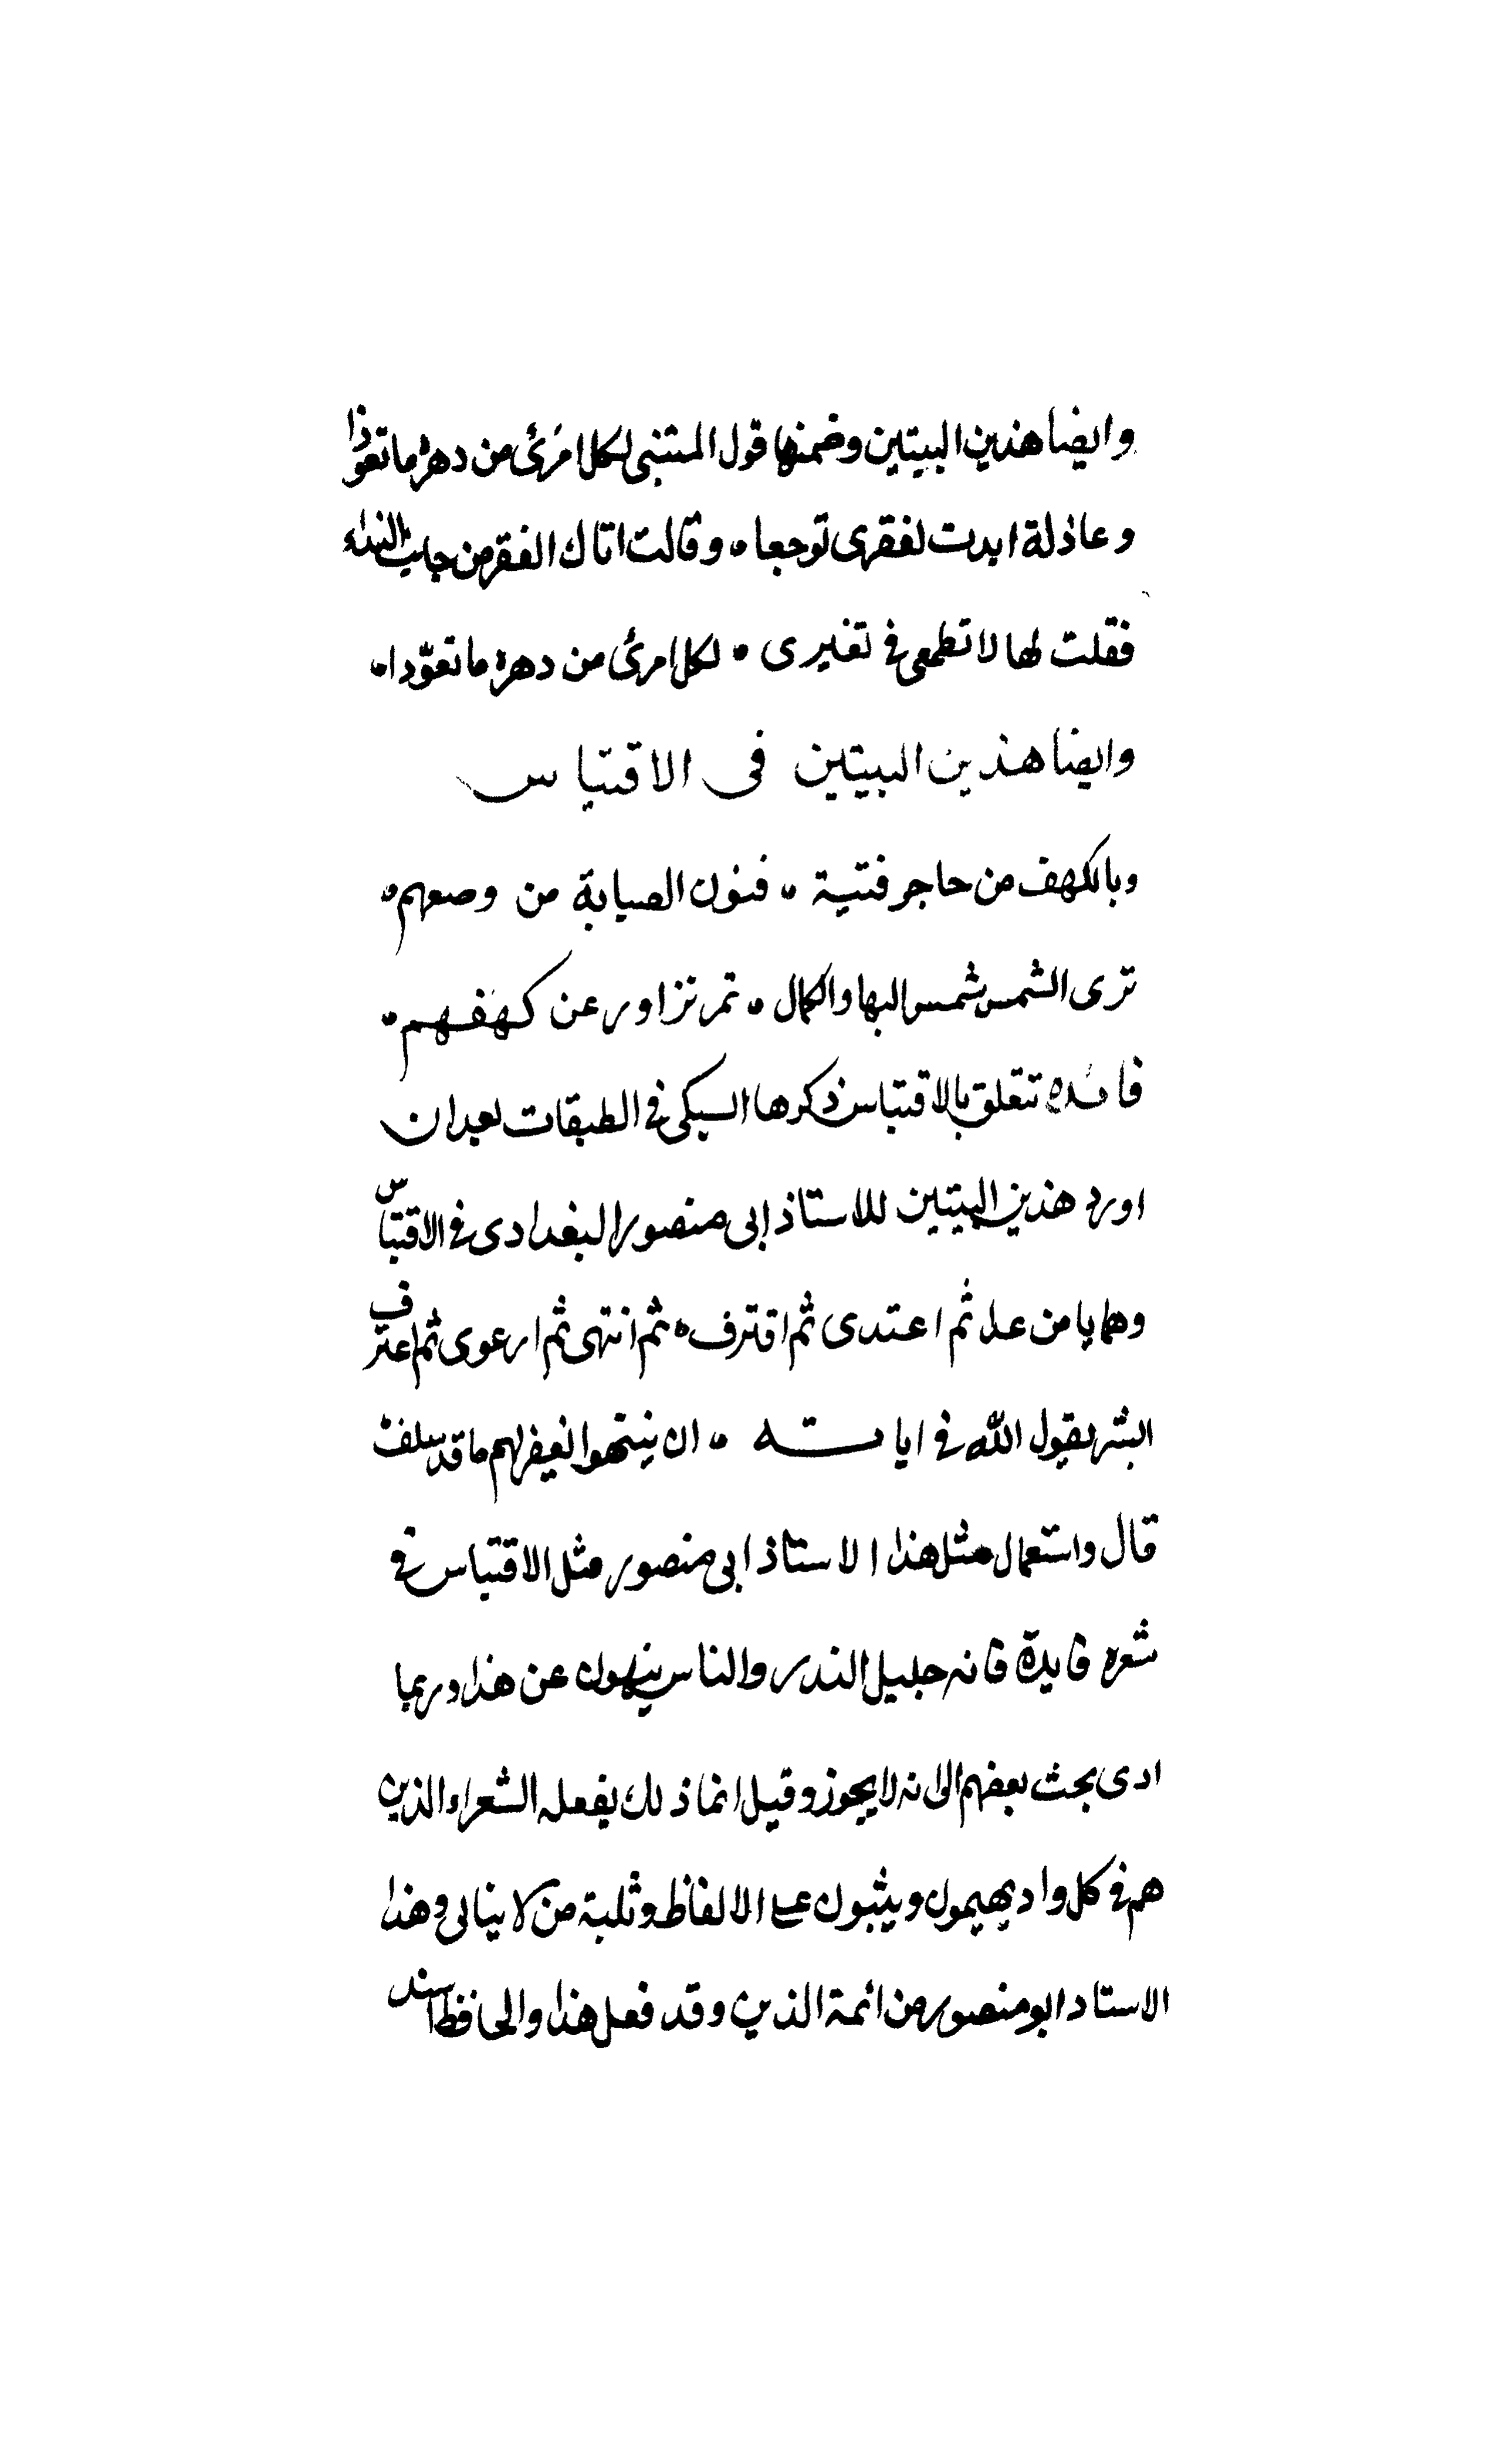 وايضا هذين البيتين وضمنها قول المتنبى لكل امرئ من دهره ما تعودا
وعاذلة ابدت لفقرى توجعا ، وقالت اتاك الفقر من جانب النداء
فقلت لها لا تطمعى فى تغيرى ، لكل امرئ من دهره ما تعوّدا ،
وايضا هذين البيتين فى الاقتباس
وبالكهف من حاجر فتية ، فنون الصبابة من وصعهم ،
ترى الشمس شمس البها والكمال ، تمر تزاور عن كهفهم ،
فائده تتعلق بالاقتباس ذكرها السبكى فى الطبقات بعد ان
اورد هذين البيتين للاستاذ ابى منصور البغدادى فى الاقتباس
وهما يا من عدا ثم اعتدى ثم اقترف ، ثم انتهى ثم ارعوى ثم اعترف
ابشر بقول الله فى اياته ، ان ينتهوا يغفر لهم ما قد سلف
قال واستعمال مثل هذا الاستاذ ابى منصور مثل الاقتباس فى
شعره فايدة فانه جليل القدر والناس ينهون عن هذا وربما
ادى بحث بعضهم الى انه لا يجوز وقيل انما ذلك يفعله الشعراء الذين
هم فى كل واد يهيمون ويثبون على الالفاظ وثبة من لا يبالى وهذا
الاستاد ابو منصور من ائمة الدين وقد فعل هذا والحافظ اسند